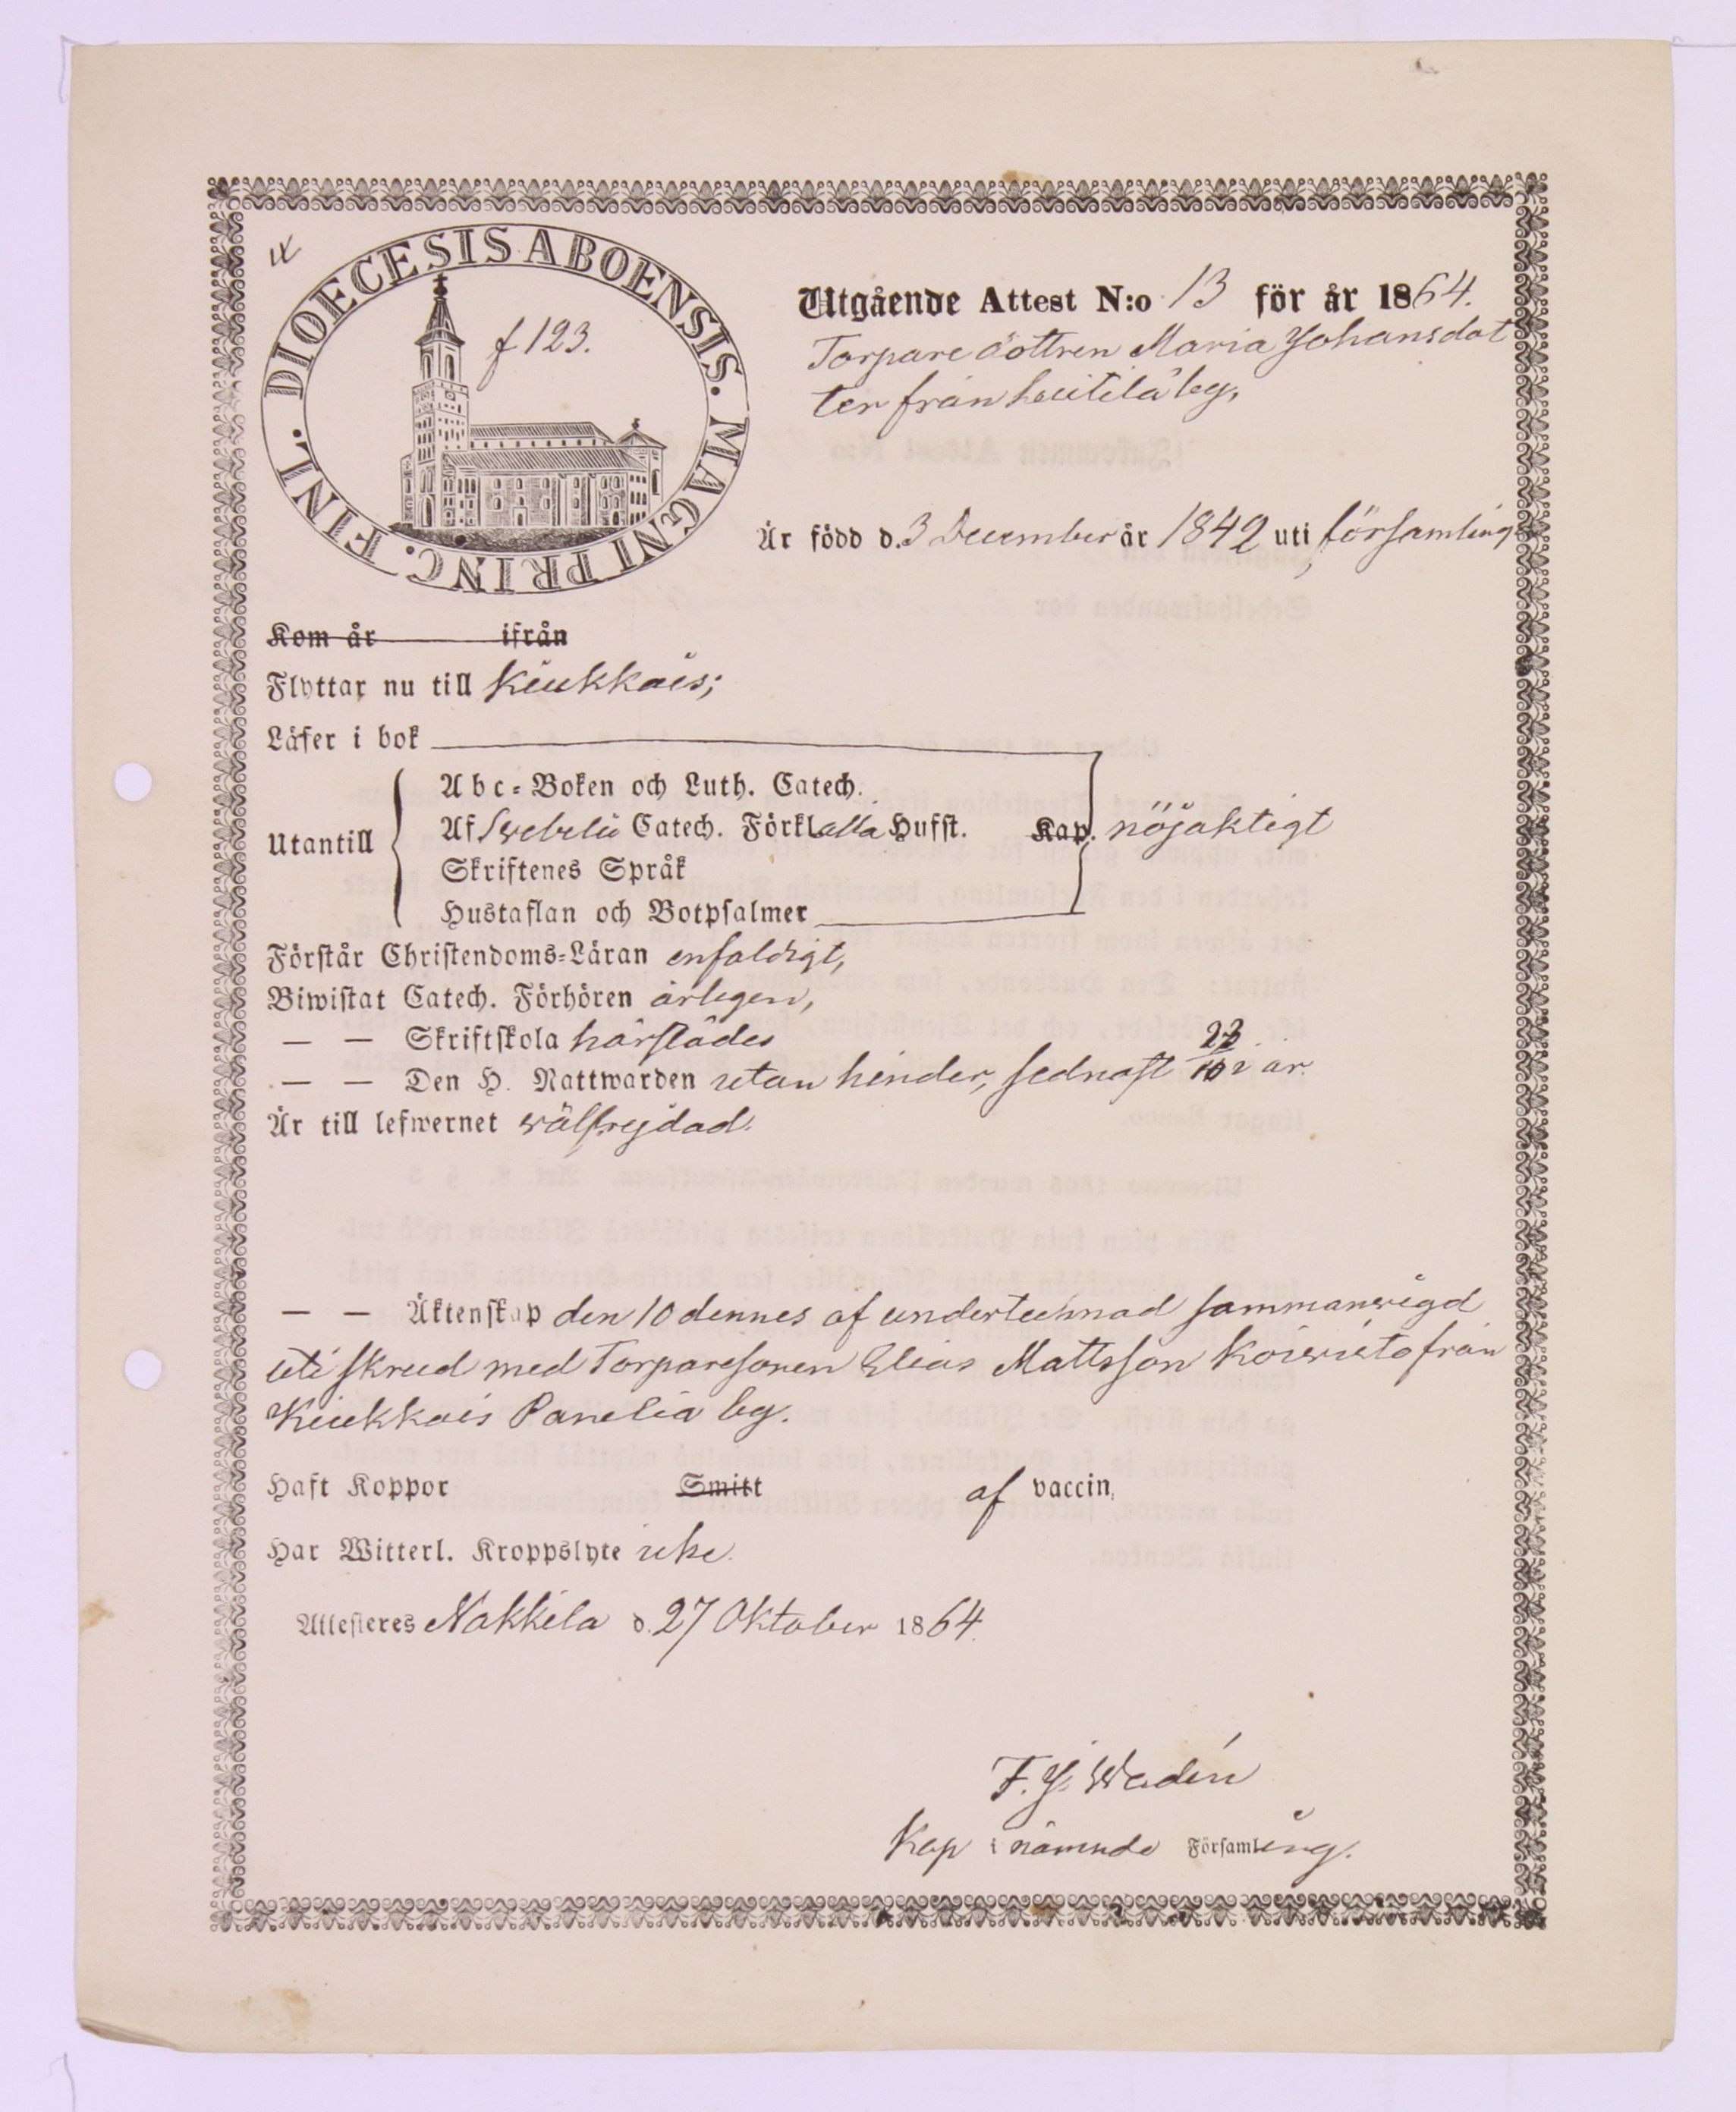 DIOECESIS ABOENSIS. MAGNI PRINC. FINL.
f 123.
Utgående Attest N:o 13 för år 1864.
Torparedottren Maria Johansdot
ter från Leitilä by,
Är född d. 3 December år 1842 uti församling
Kom år ifrån
Flyttar nu till Kiukkais;
Läser i bok
Abc-Boken och Luth. Catech.
Utantill Af Svebelii Catech. Förkl. alla Hufst. Kap. nöjaktigt
Skriftenes Språk
Hustaflan och Botpsalmer
Förstår Christendoms-Läran enfaldigt,
Biwistat Catech. Förhören årligen,
— — Skriftskola härstädes
— — Den H. Nattwarden utan hinder, sednast 23/10 i år.
Är till lefwernet välfrejdad.
— — Äktenskap den 10 dennes af undertecknad sammanvigd
uti skrud med Torparesonen Elias Mattsson Koivisto från
Kiukkais Panelia by.
Haft Koppor Smitt af vaccin,
Har Witterl. Kroppslyte icke.
Attesteres Nakkila d. 27 Oktober 1864.
F. J. Wadén
Kap i nämnde Församling.